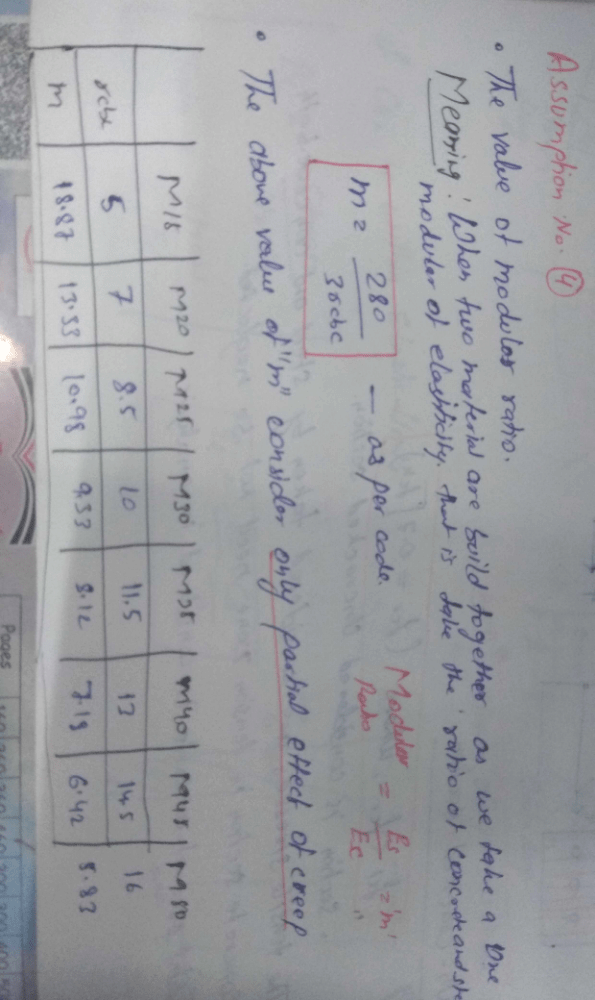 Assumption No. (4)
• The value of modular ratio.
Meaning: When two material are build together as we take a one
modular of elasticity. that is take the ratio of concrete and st
Modular Ratio = Es/Ec = 'm'
m = 280/3σcbc — as per code.
• The above value of "m" consider only partial effect of creep
M15 M20 M25 M30 M35 M40 M45 M50
σcbc 5 7 8.5 10 11.5 13 14.5 16
m 18.87 13.33 10.98 9.33 8.12 7.18 6.42 5.83
Pages